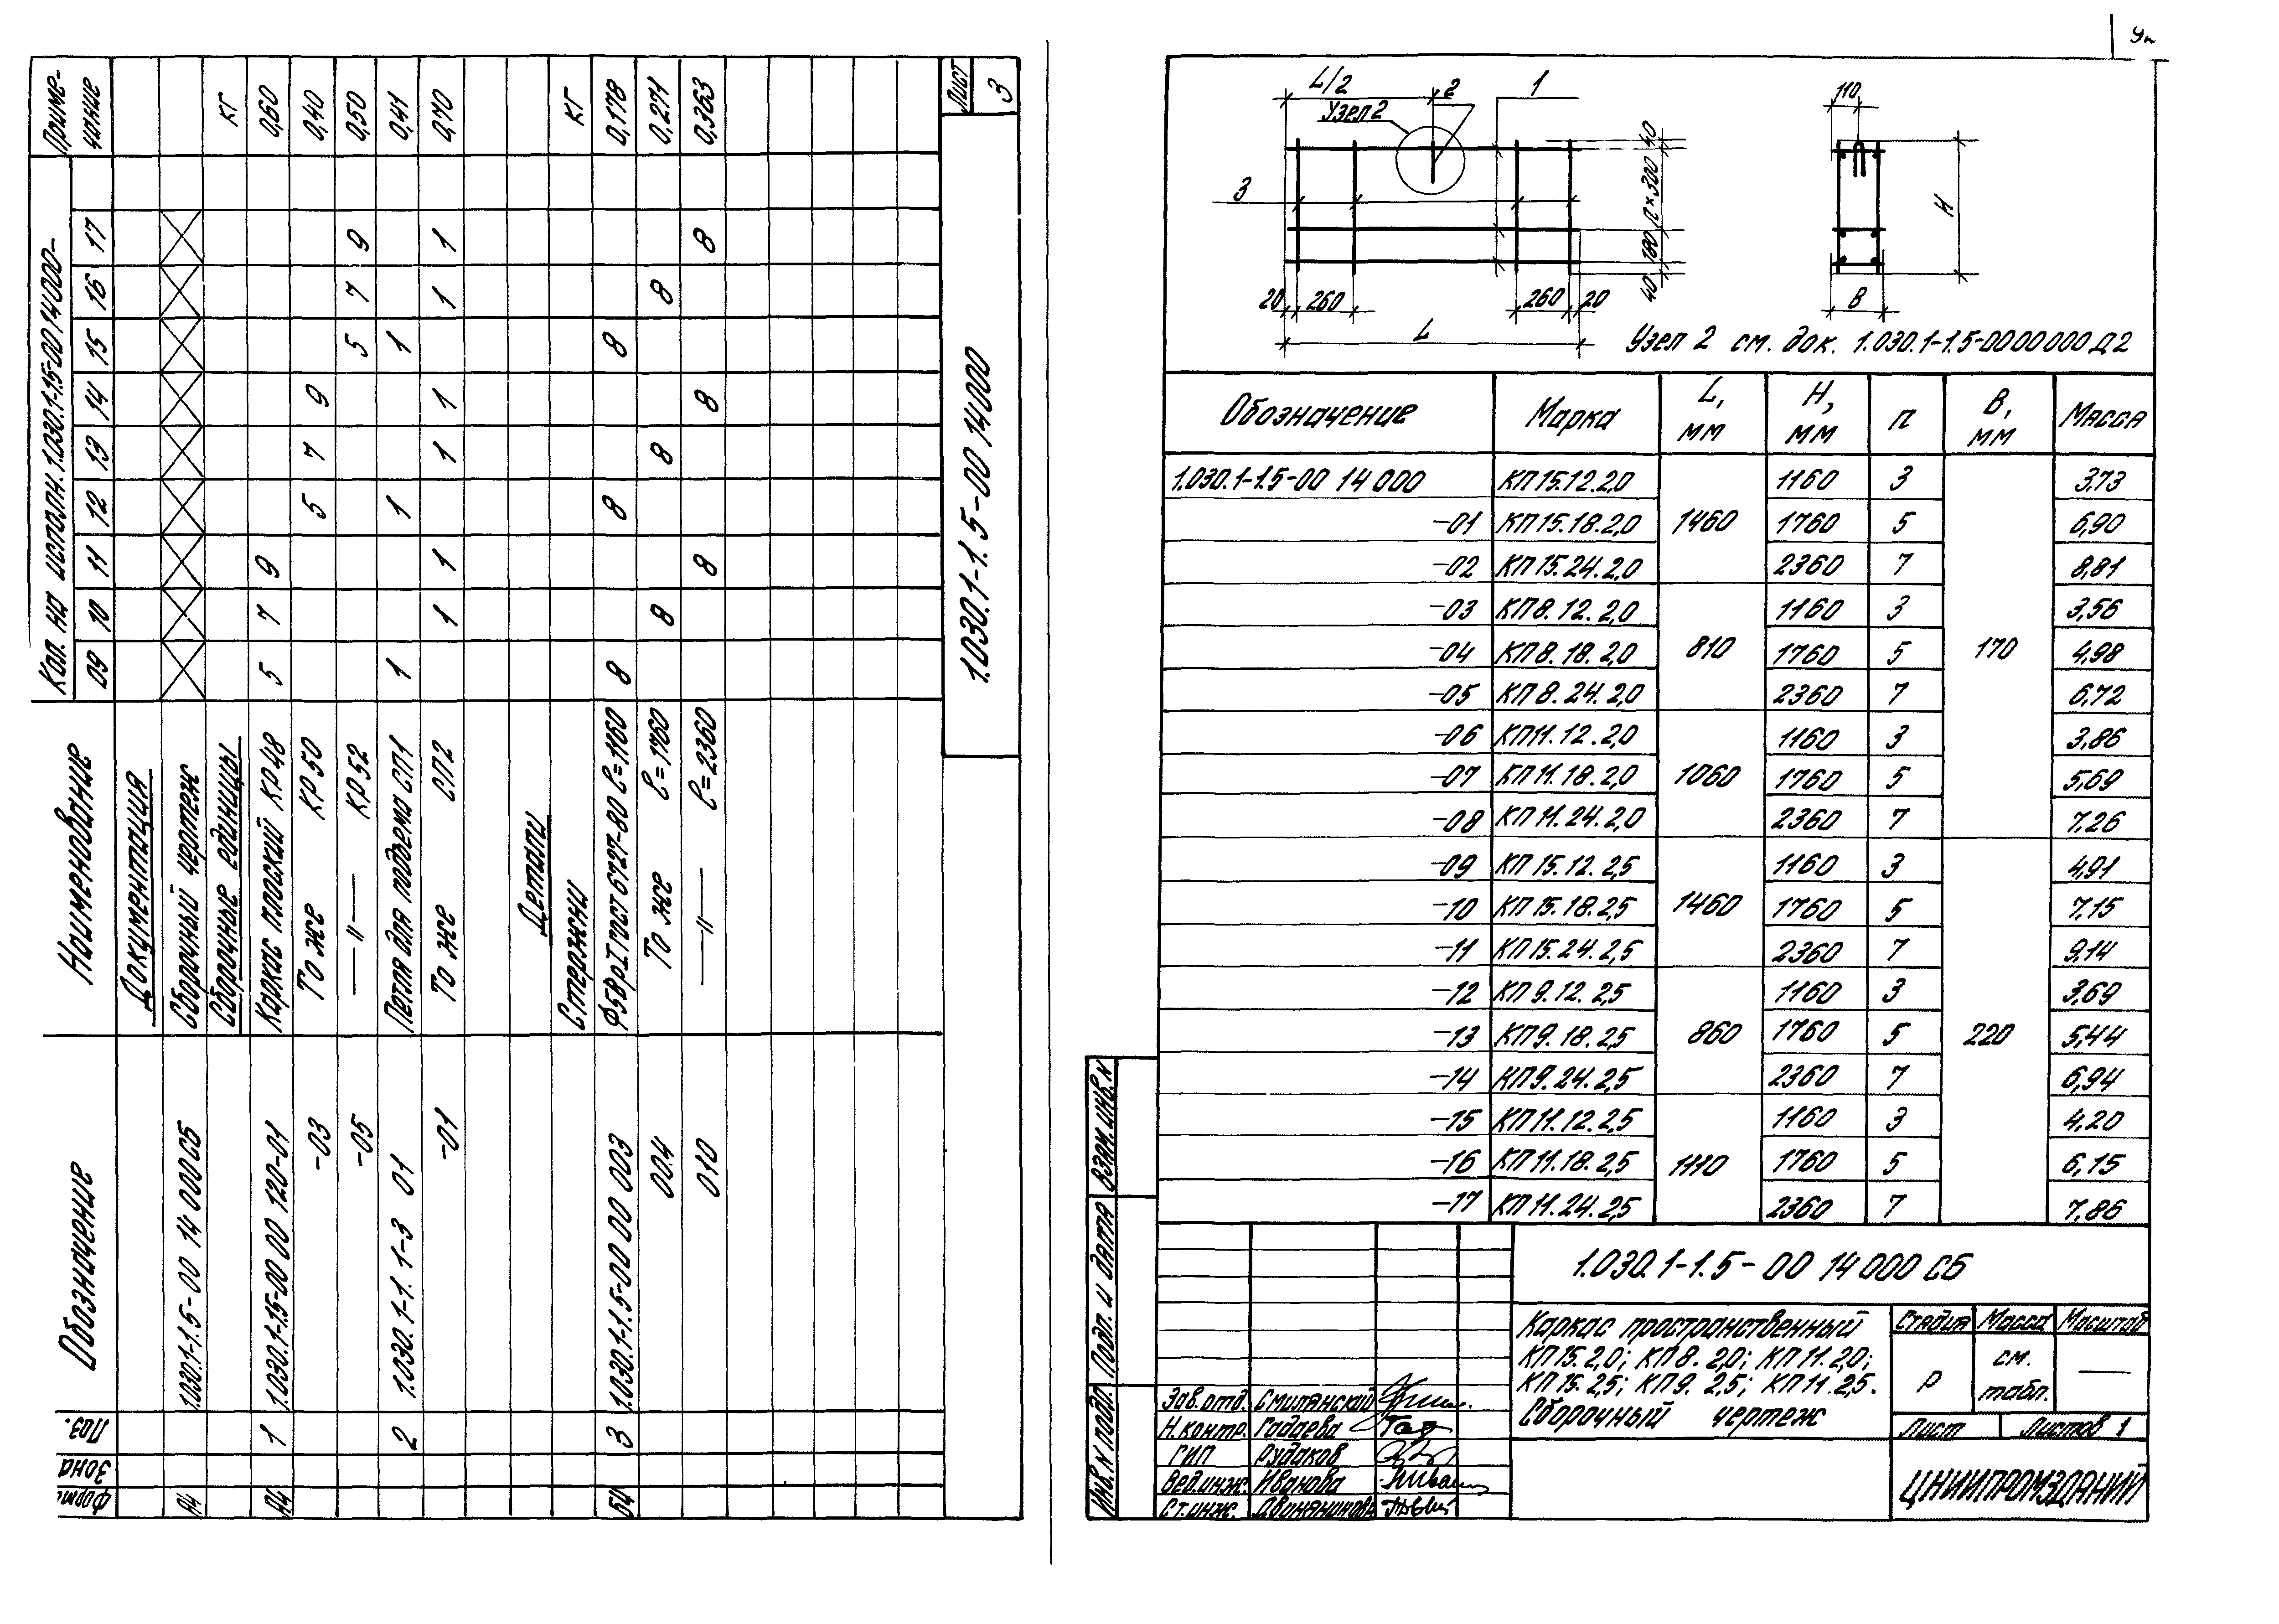 Формат Зона Поз. Обозначение Наименование Кол. на исполн. 1.030.1-1.5-00 14 000- Приме-
09 10 11 12 13 14 15 16 17 чание
Документация
А4 1.030.1-1.5-00 14 000 СБ Сборочный чертеж
Сборочные единицы кг
А4 1 1.030.1-1.5-00 00 120-01 Каркас плоский КР48 5 7 9 0,60
-03 То же КР50 5 7 9 0,40
-05 —〃— КР52 5 7 9 0,50
2 1.030.1-1.1.1-3 01 Петля для подъема СП1 1 1 1 0,41
-01 То же СП2 1 1 1 1 1 1 0,70
Детали
Стержни кг
Б4 3 1.030.1-1.5-00 00 003 Ф5ВрI ГОСТ 6727-80 ℓ=1160 8 8 8 0,178
004 То же ℓ=1760 8 8 8 0,271
010 —〃— ℓ=2360 8 8 8 0,363
1.030.1-1.5-00 14000
Лист
3
L/2
Узел 2
2
1
3
20 260 260 20
L
40 п×300 180 40
110
Н
В
Узел 2 см. док. 1.030.1-1.5-00 00 000 Д2
Обозначение Марка L, мм Н, мм п В, мм Масса
1.030.1-1.5-00 14 000 КП 15.12.2,0 1160 3 3,73
-01 КП 15.18.2,0 1460 1760 5 6,90
-02 КП 15.24.2,0 2360 7 8,81
-03 КП 8.12.2,0 1160 3 3,56
-04 КП 8.18.2,0 810 1760 5 170 4,98
-05 КП 8.24.2,0 2360 7 6,72
-06 КП 11.12.2,0 1160 3 3,86
-07 КП 11.18.2,0 1060 1760 5 5,69
-08 КП 11.24.2,0 2360 7 7,26
-09 КП 15.12.2,5 1160 3 4,91
-10 КП 15.18.2,5 1460 1760 5 7,15
-11 КП 15.24.2,5 2360 7 9,14
-12 КП 9.12.2,5 1160 3 3,69
-13 КП 9.18.2,5 860 1760 5 220 5,44
-14 КП 9.24.2,5 2360 7 6,94
-15 КП 11.12.2,5 1160 3 4,20
-16 КП 11.18.2,5 1110 1760 5 6,15
-17 КП 11.24.2,5 2360 7 7,86
1.030.1-1.5-00 14 000 СБ
Каркас пространственный
КП 15.2,0; КП 8.2,0; КП 11.2,0;
КП 15.2,5; КП 9.2,5; КП 11.2,5.
Сборочный чертеж
Стадия Масса Масштаб
Р см. табл. —
Лист Листов 1
ЦНИИПРОМЗДАНИЙ
Зав.отд. Смилянский
Н.контр. Гадаева
ГИП Рудаков
Вед.инж. Иванова
Ст.инж.
Инв.N подл. Подп. и дата Взам.инв.N